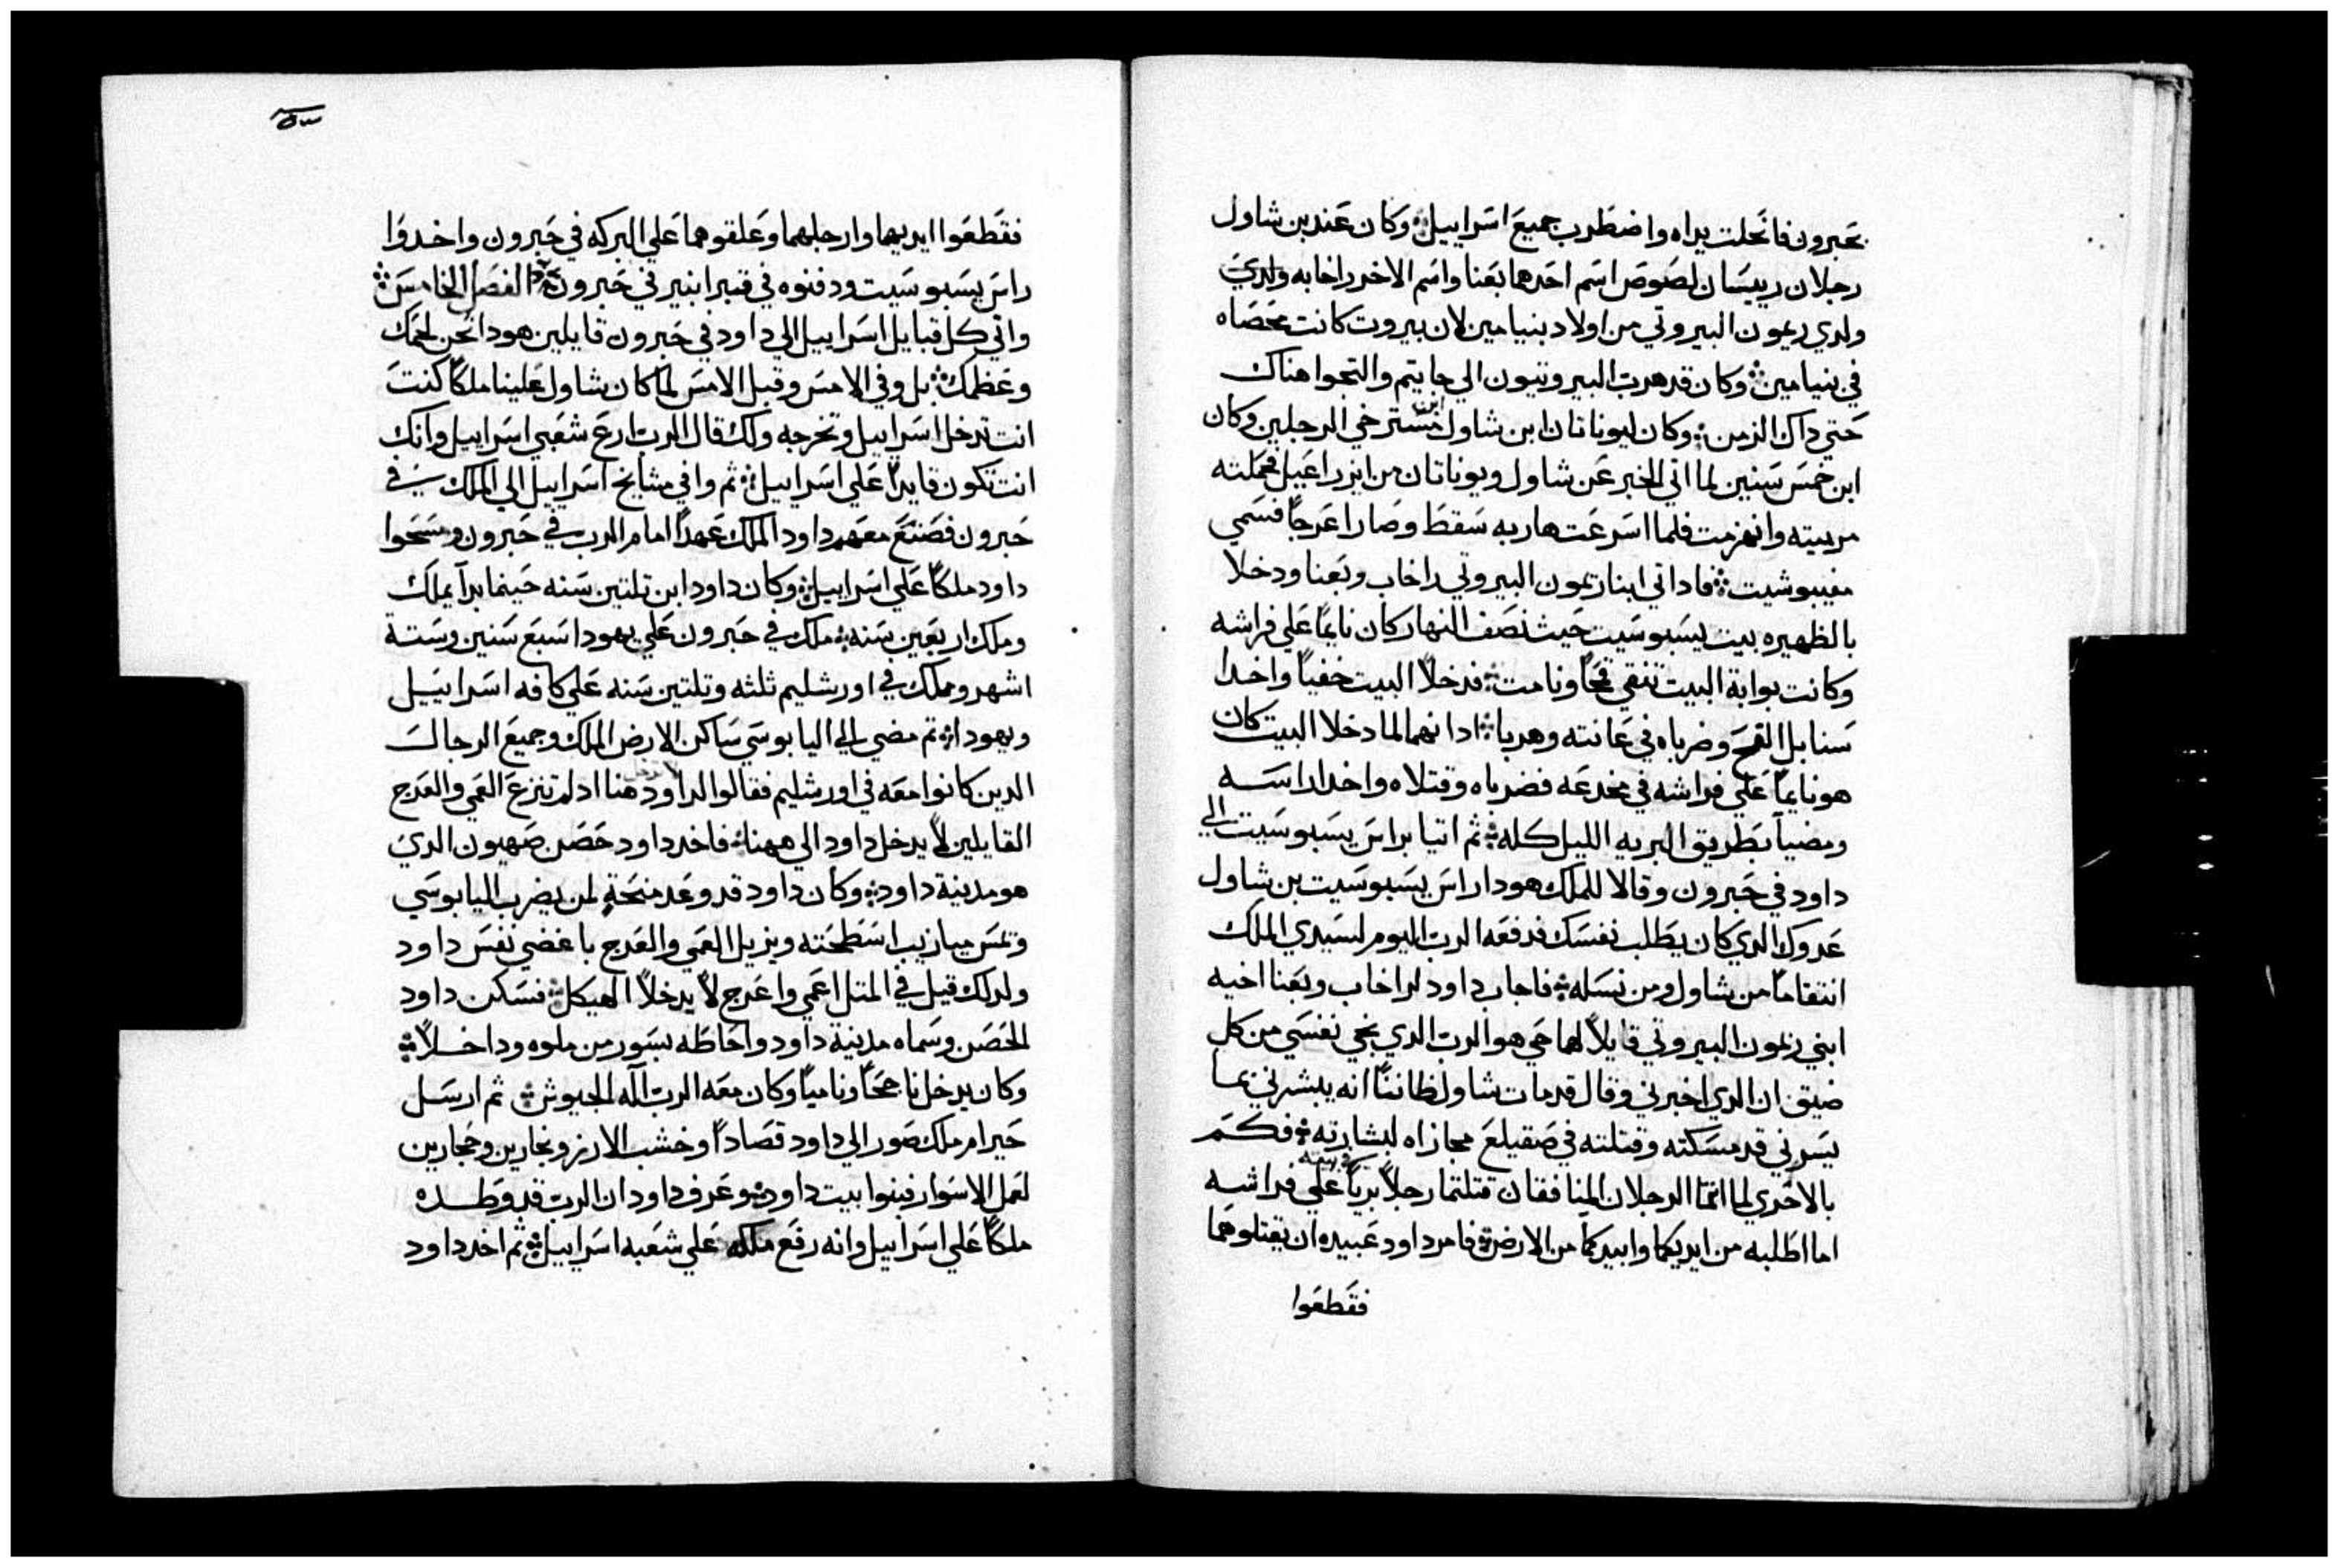 بحَبرون فانحَلت يداه واضطرب جميعَ اسَراييل ⁘ وكان عَند بن شاول
رجلان رييسَان لصَوصَ اسَم احَدهما بَعَنا واسَم الاخر راخابه ولدي
ولدي ريمون البيروتي من اولاد بنيامين لان بيروت كانت محَصَاه
في بنيامين ⁘ وكان قد هرب البيروتيون الي جايتم والتجوا هناك
حَتي داك الزمن ⁘ وكان ليوناتان ابن شاول ابن مسترخي الرجلين وكان
ابن خمسَ سَنين لما اتي الخبر عَن شاول ويوناتان من ايزراعَيل فحملته
مربيته وانهزمت فلما اسَرعَت هاربه سَقطَ وصَار اعَرجاً فسَمي
مفيبوشيت ⁘ فاد اتي ابنا ريمون البيروتي راخاب وبَعَنا ودخلا
بالظهيره بيت يسَبوسَيت حَيث نصَف النهار كان نايماً عَلي فراشه
وكانت بوابة البيت تنقي قمحَاً ونامت ⁘ فدخلا البيت خفياً واخدا
سَنابل القمحَ وضرباه في عَانته وهربا ⁘ اد انهما لما دخلا البيت كان
هو نايماً عَلي فراشه في مخدعَه فضرباه وقتلاه واخدا راسَه
ومضيا بَطَريق البريه الليل كله ⁘ ثم اتيا براسَ يسَبوسَيت الي
داود في حَبرون وقالا للملك هودا راسَ يسَبوسَيت بن شاول
عَدوك الدي كان يطَلب نفسَك فدفعَه الرب اليوم لسَيدي الملك
انتقاماً من شاول ومن نسَله ⁘ فاجاب داود لراخاب وبَعَنا اخيه
ابني ريمون البيروتي قايلاً لهما حَي هو الرب الدي نجي نفسَي من كل
ضيق ان الدي اخبرني وقال قد مات شاول ظاننا انه يبشرني بما
يسَرني قد مسَكته وقتلته في صَقيلغَ مجازاه لبشارته ⁘ فكم
بالاحَري لما انتما الرجلان المنافقان قتلتما رجلاً برياً في بيته عَلي فراشه
اما اطَلبه من ايديكما وابيدكما من الارض ⁘ فامر داود عَبيده ان يقتلوهَما
فقَطعَوا
فقَطعَوا ايديهما وارجلهما وعَلقوهما عَلي البركه في حَبرون واخدوا
راسَ يسَبوسَيت ودفنوه في قبر ابنير في حَبرون ⁘ الفصَل الخامسَ ⁘
واتي كل قبايل اسَراييل الي داود في حَبرون قايلين هودا نحَن لحمَك
وعَظمك ⁘ بل وفي الامسَ وقبل الامسَ لما كان شاول عَلينا ملكاً كنتَ
انت تدخل اسَراييل وتخرجه ولك قال الرب ارعَ شعَبي اسَراييل وانك
انت تكون قايداً عَلي اسَراييل ⁘ ثم وافي مشايخ اسَراييل الي الملك في
حَبرون فصَنعَ معَهم داود الملك عَهداً امام الرب في حَبرون ومسَحَوا
داود ملكاً عَلي اسَراييل ⁘ وكان داود ابن تلتين سَنه حَينما بدا يملك
وملك اربعَين سَنه ⁘ ملك في حَبرون عَلي يهودا سَبعَ سَنين وسَتة
اشهر وملك في اورشليم ثلثه وتلتين سَنه عَلي كافه اسَراييَل
ويهودا ⁘ ثم مضي الي اليابوسَي سَاكن الارض الملك وجميعَ الرجال
الدين كانوا معَه في اورشليم فقالوا لداود لا تدخل هنا اد لم تنزعَ العَمي والعَرج
القايلين لا يدخل داود الي ههنا ⁘ فاخد داود حَصَن صَهيون الدي
هو مدينة داود ⁘ وكان داود قد وعَد منحَة لمن يضرب اليابوسَي
وتمسَ ميازيب اسَطحَته ويزيل العَمي والعَرج باغضي نفسَ داود
ولدلك قيل في المتل اعَمي واعَرج لا يدخلا الهيكل ⁘ فسَكن داود
الحَصَن وسَماه مدينة داود واحَاطَه بسَور من ملوه وداخلاً ⁘
وكان يدخل ناجحَاً وناميا وكان معَه الرب اله الجيوش ⁘ ثم ارسَل
حَيرام ملك صَور الي داود قصَاداً وخشب الارز ونجارين وحَجارين
لعَمل الاسَوار فبنوا بيت داود ⁘ وعَرف داود ان الرب قد وطَده
ملكاً عَلي اسَراييل وانه رفَع ملكه عَلي شعَبه اسَراييل ⁘ ثم اخد داود